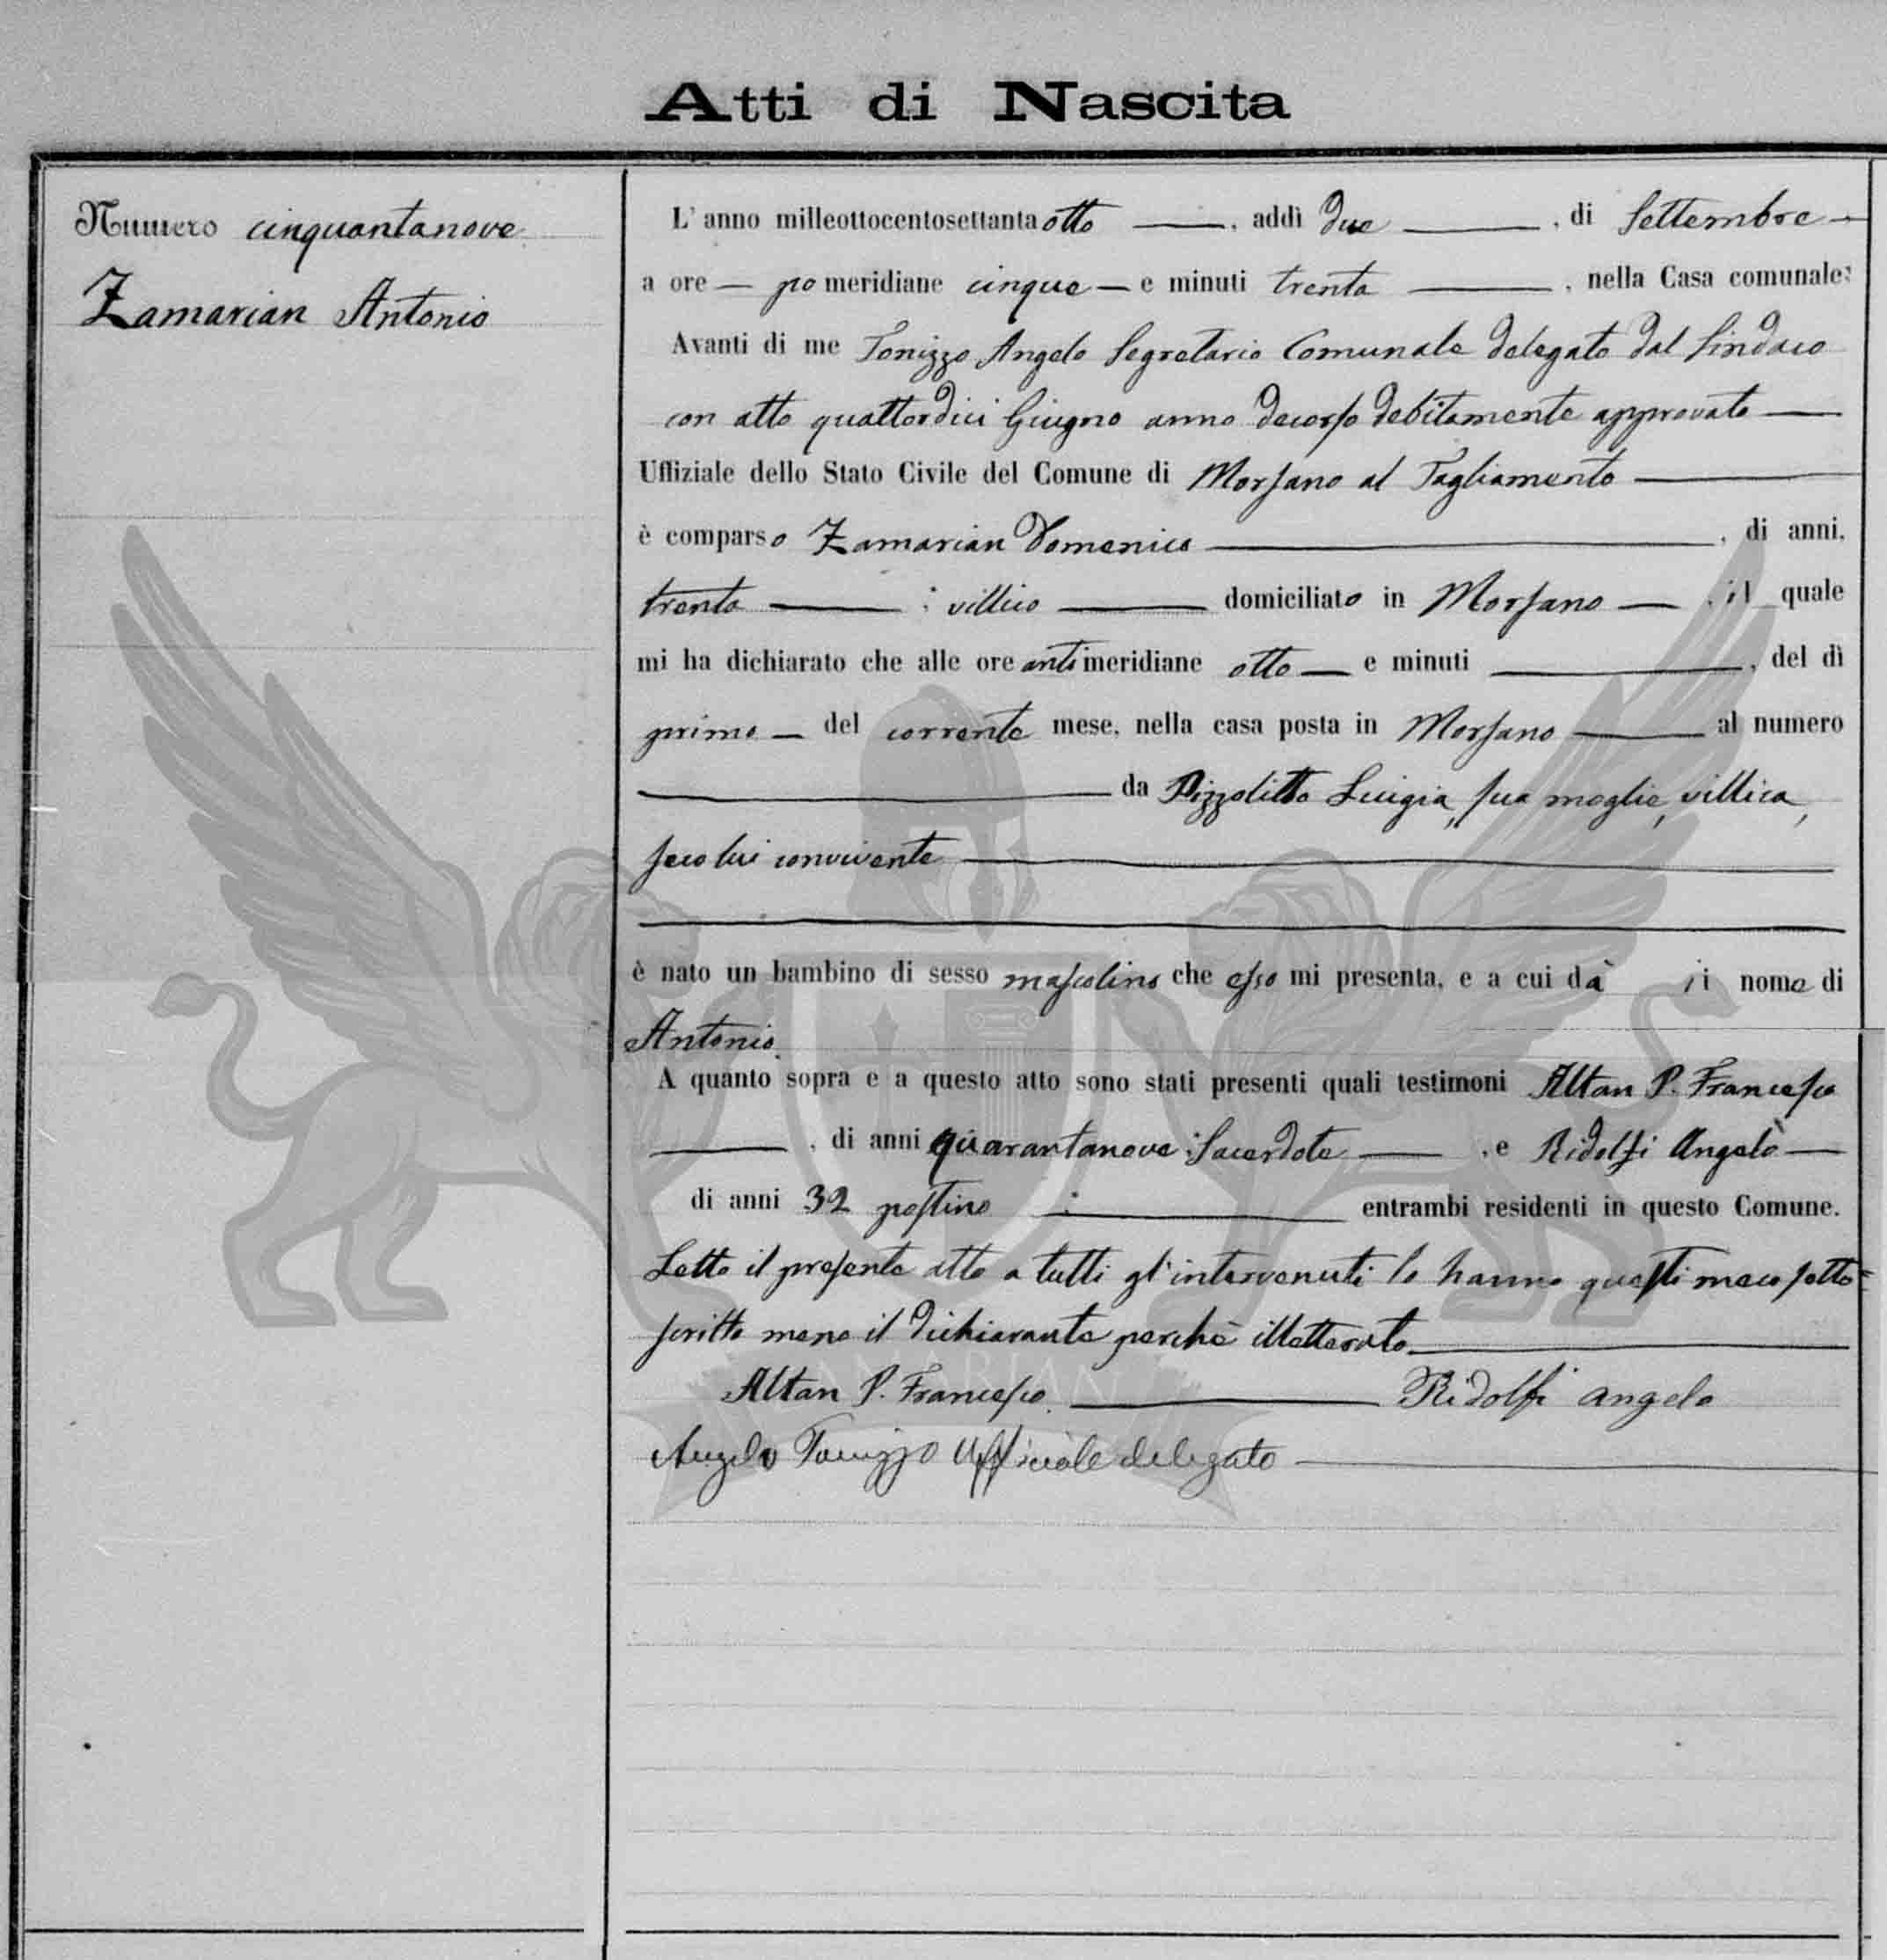 Atti di Nascita
Numero cinquantanove
Zamarian Antonio
L'anno milleottocentosettantaotto, addì due, di Settembre
a ore pomeridiane cinque e minuti trenta, nella Casa comunale:
Avanti di me Tonizzo Angelo Segretario Comunale delegato dal Sindaco
con atto quattordici Giugno anno decorso debitamente approvato
Uffiziale dello Stato Civile del Comune di Morsano al Tagliamento
è comparso Zamarian Domenico, di anni,
trenta; villico domiciliato in Morsano, il quale
mi ha dichiarato che alle ore antimeridiane otto e minuti, del dì
primo del corrente mese, nella casa posta in Morsano al numero
da Pizzolitto Luigia, sua moglie, villica,
seco lui convivente
è nato un bambino di sesso mascolino che esso mi presenta, e a cui dà i nome di
Antonio.
A quanto sopra e a questo atto sono stati presenti quali testimoni Altan P. Francesco
, di anni quarantanove; Sacerdote, e Ridolfi Angelo
di anni 32 postino; entrambi residenti in questo Comune.
Letto il presente atto a tutti gl'intervenuti lo hanno questi meco sotto=
scritto meno il dichiarante perchè illetterato.
Altan P. Francesco. Ridolfi Angelo
Angelo Tonizzo Ufficiale delegato